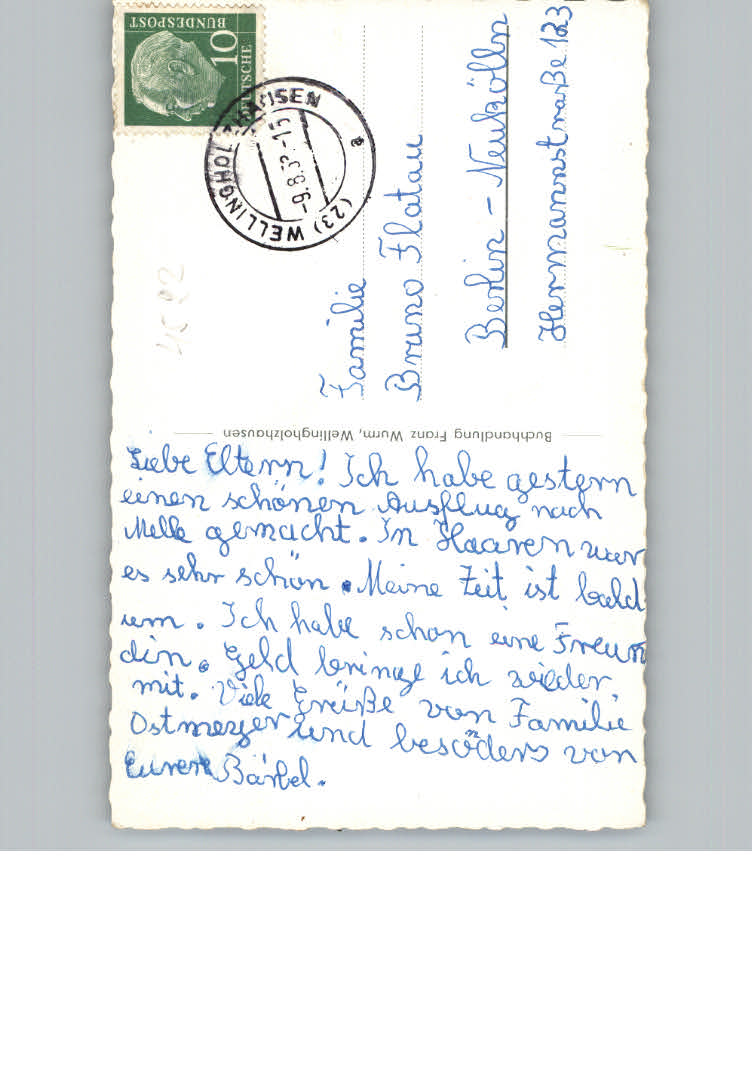 DEUTSCHE
BUNDESPOST
10
(23) WELLINGHOLZHAUSEN
a
Familie
Bruno Flatau
Berlin - Neukölln
Hermannstraße 123
Buchhandlung Franz Wurm, Wellingholzhausen
Liebe Eltern! Ich habe gestern
einen schönen Ausflug nach
Melle gemacht. In Haaren war
es sehr schön. Meine Zeit ist bald
um. Ich habe schon eine Freun
din. Geld bringe ich wieder
mit. Viele Grüße von Familie
Ostmeyer und besöders von
Eurer Bärbel.